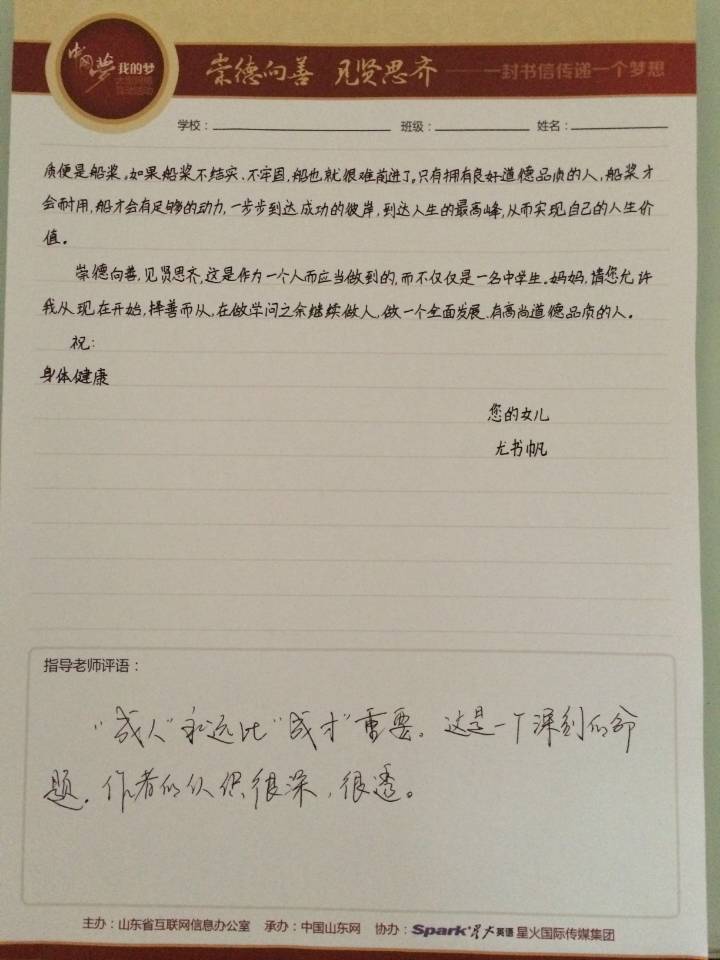 中国梦 我的梦
崇德向善 见贤思齐 ——一封书信传递一个梦想
学校： 班级： 姓名：
质便是船桨。如果船桨不结实、不牢固，船也就很难前进了。只有拥有良好道德品质的人，船桨才
会耐用，船才会有足够的动力，一步步到达成功的彼岸，到达人生的最高峰，从而实现自己的人生价
值。
崇德向善，见贤思齐，这是作为一个人而应当做到的，而不仅仅是一名中学生。妈妈，请您允许
我从现在开始，择善而从，在做学问之余继续做人，做一个全面发展、有高尚道德品质的人。
祝：
身体健康
您的女儿
尤书帆
指导老师评语：
“成人”永远比“成才”重要。这是一个深刻的命
题。作者的认识很深，很透。
主办：山东省互联网信息办公室 承办：中国山东网 协办：Spark星火英语 星火国际传媒集团